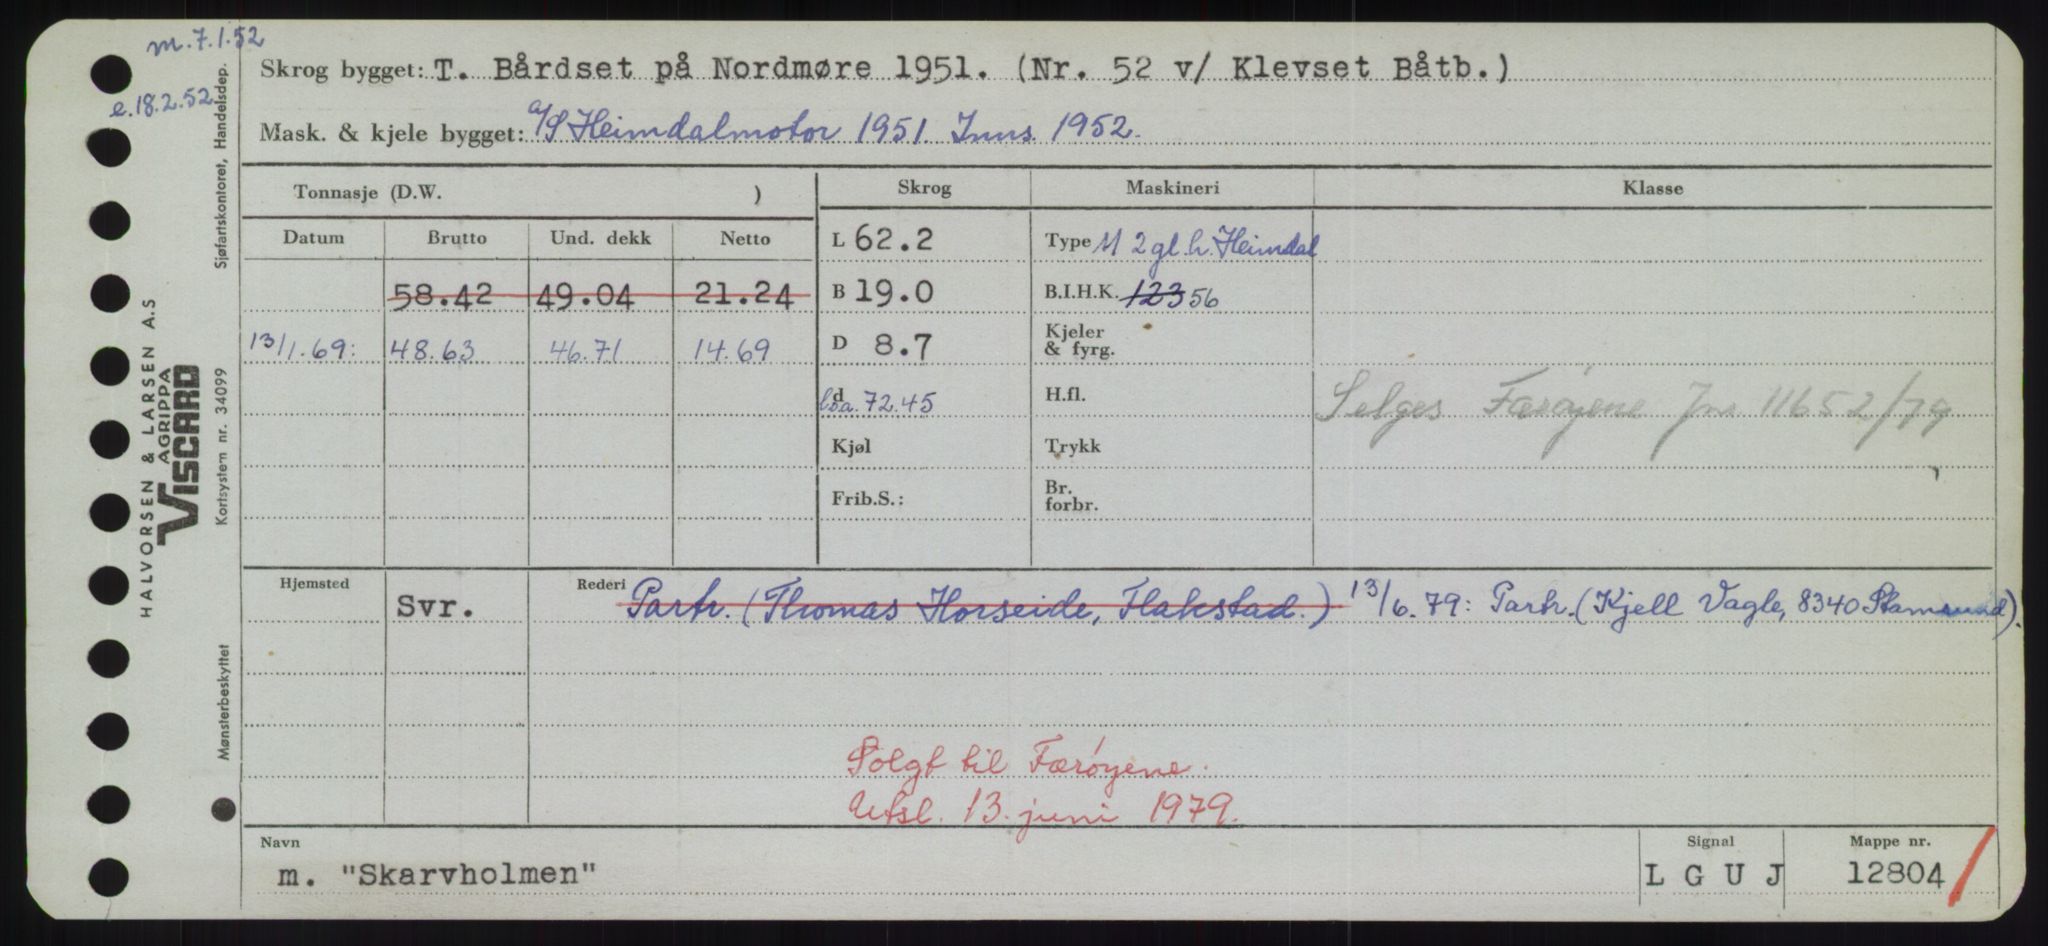 m.7.1.52
e.18.2.52
Skrog bygget: T. Bårdset på Nordmøre 1951. (Nr. 52 v/ Klevset Båtb.)
Mask. & kjele bygget: a/S Heimdalmotor 1951. Inns. 1952.
Tonnasje (D.W. ) Skrog Maskineri Klasse
Datum Brutto Und. dekk Netto L 62.2 Type M 2 gl.h. Heimdal
58.42 49.04 21.24 B 19.0 B.I.H.K. 123 56
13/1.69: 48.63 46.71 14.69 D 8.7 Kjeler & fyrg.
d 72.45 H.fl. Selges Færøyene Jnr. 11652/79
Kjøl Trykk
Frib.S.: Br. forbr.
Hjemsted Svr. Rederi Partr. (Thomas Horseide, Flakstad.) 13/6.79: Partr. (Kjell Vagle, 8340 Stamsund).
Solgt til Færøyene.
Utsl. 13. juni 1979.
Navn Signal Mappe nr.
m. "Skarvholmen" L G U J 12804
HALVORSEN & LARSEN A.S
AGRIPPA
VISCARD
Sjøfartskontoret, Handelsdep.
Kortsystem nr. 34099
Mønsterbeskyttet